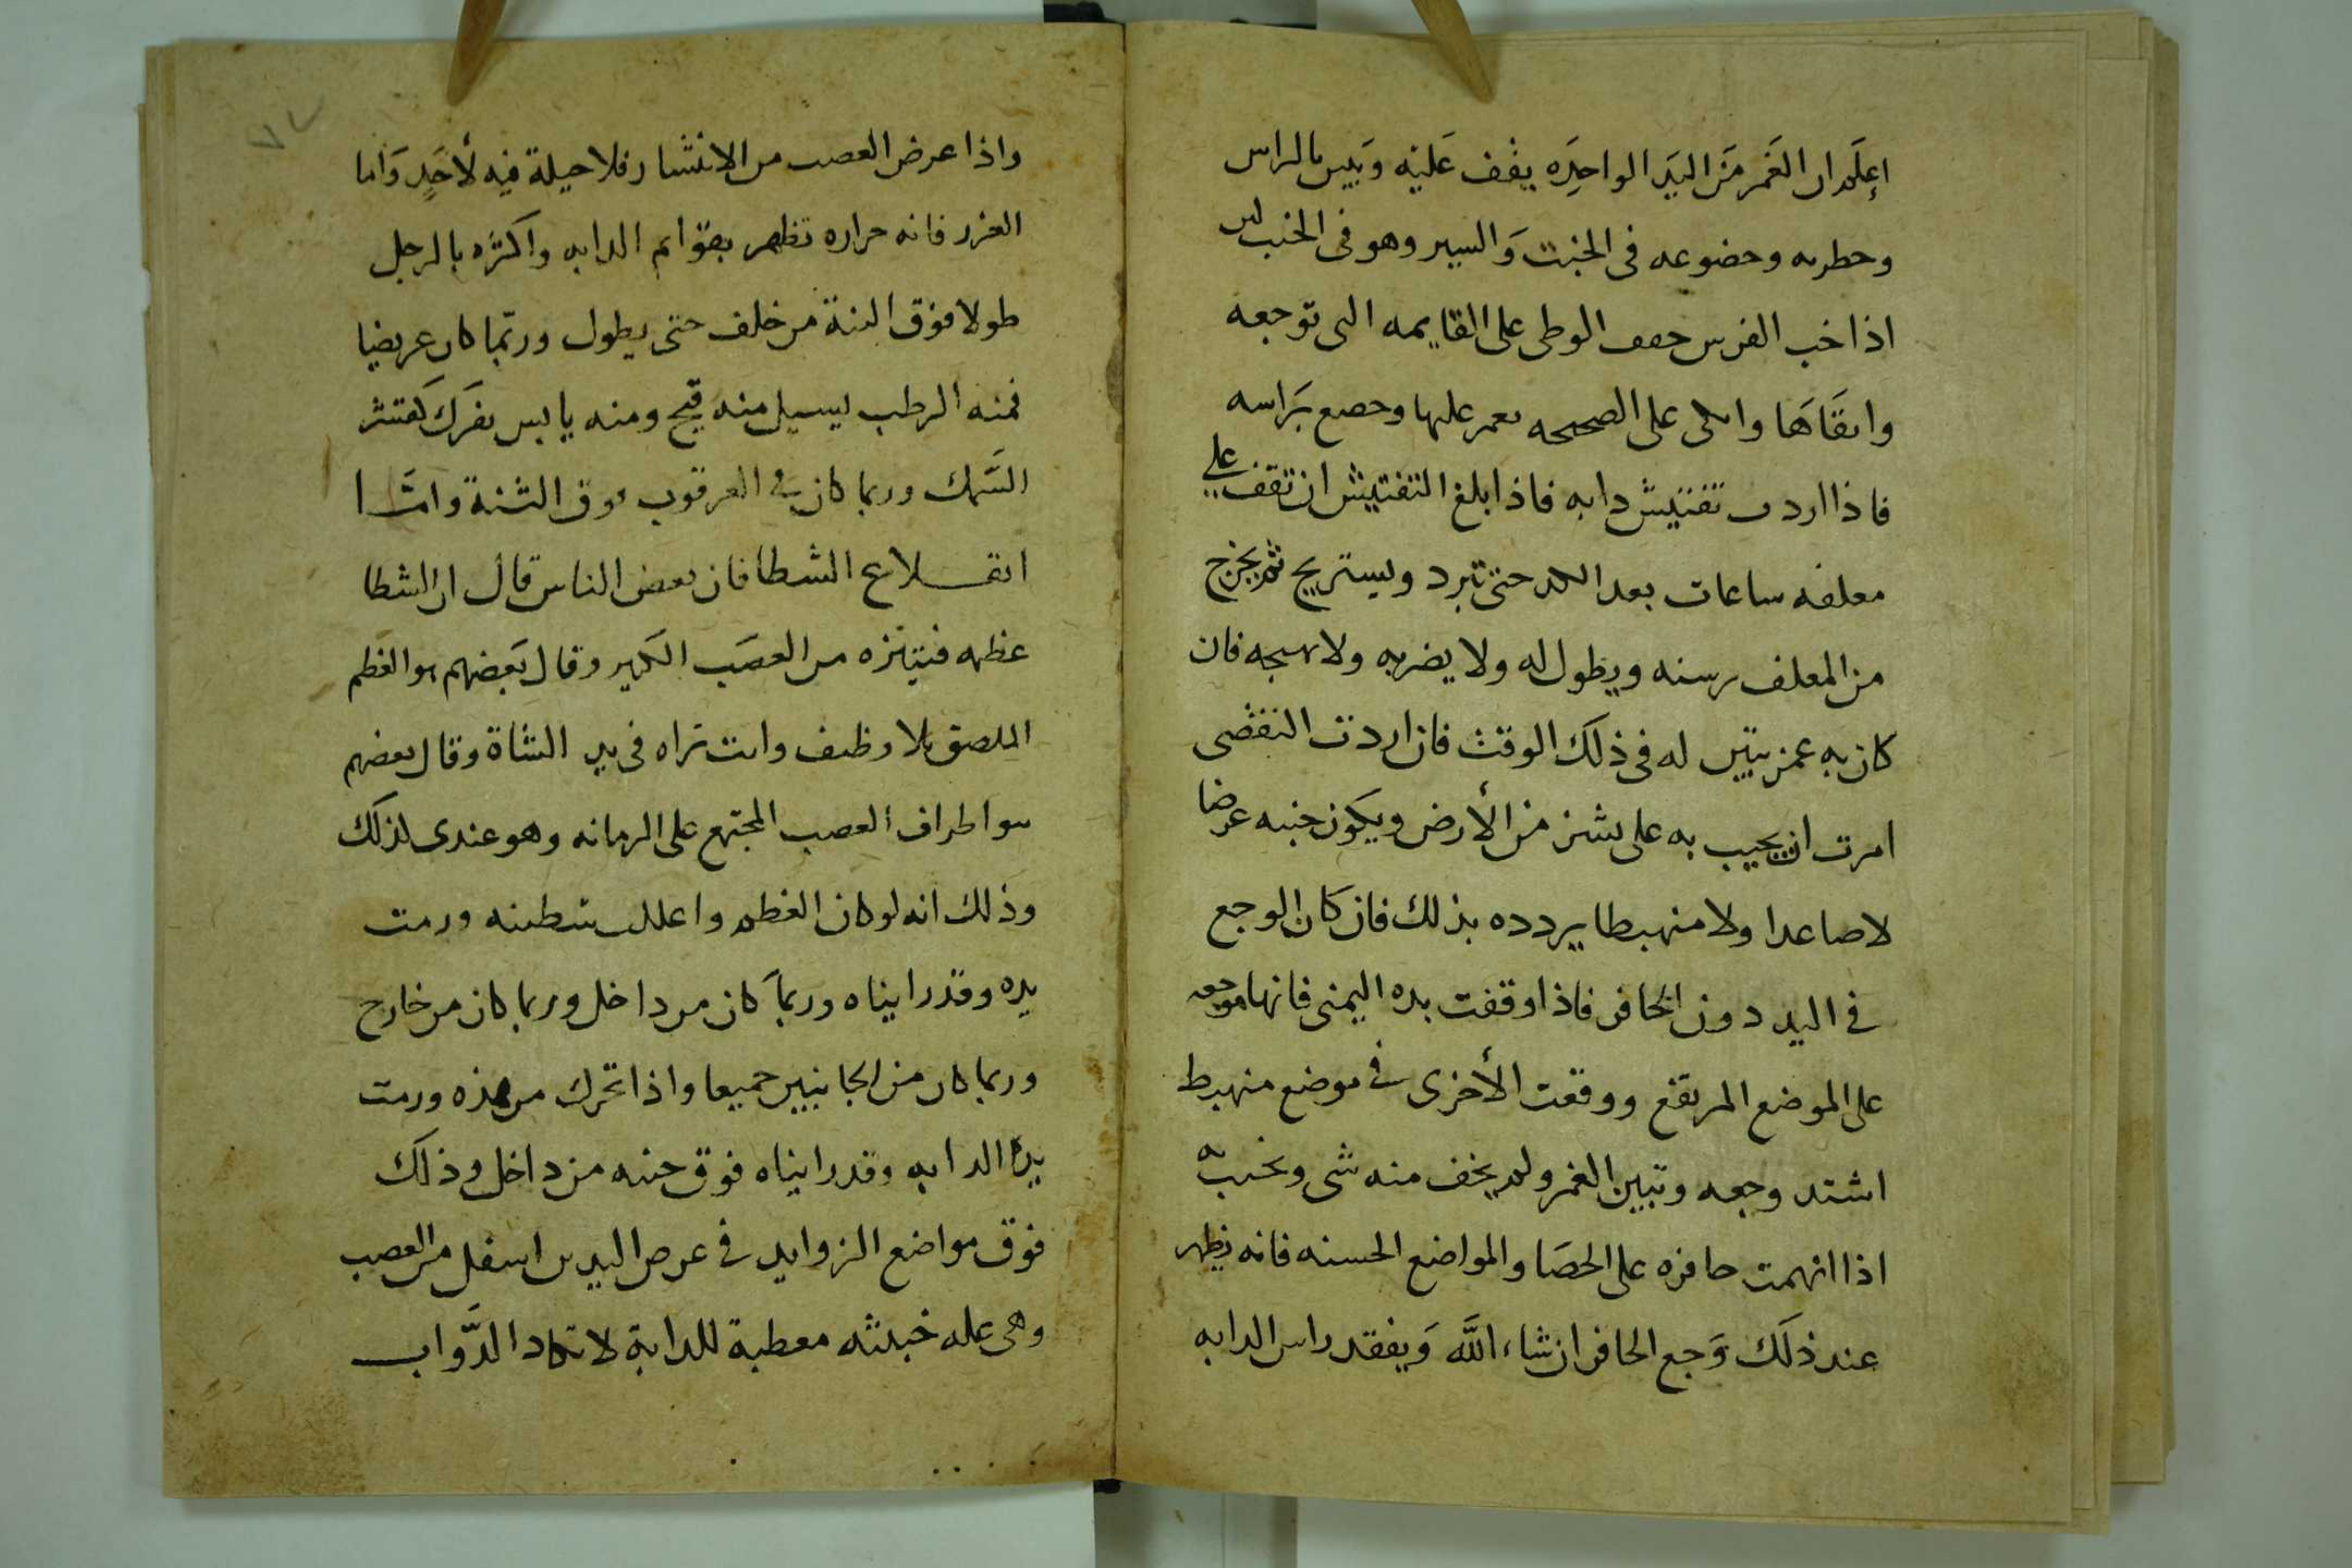 اعلم ان الغمز من اليد الواحده يقف عليه ويبين بالراس
وخطرته وخضوعه فى الخبب والسير وهو فى الخبب
اذا خب الفرس خفف الوطى على القايمه التى توجعه
واتقاها واتكى على الصحيحه وخضع براسه
فاذا اردت تفتيش دابه فاذا بلغ التفتيش ان تقف على
معلفه ساعات بعد الكد حتى تبرد ويستريح ثم يخرج
من المعلف برسنه ويطول له ولا يضربه ولا يهيجه فان
كان به غمز تبين له فى ذلك الوقت فان اردت التقصى
امرت ان يجيب به على نشز من الأرض ويكون جنبه عرضا
لا صاعدا ولا منهبطا يردده بذلك فان كان الوجع
فى اليد دون الحافر فاذا وقفت يده اليمنى فانها موجعه
على الموضع المرتفع ووقعت الأخرى فى موضع منهبط
اشتد وجعه وتبين الغمز ولم يخف منه شى
اذا اتهمت حافره على الحصا والمواضع الخشنه فانه يظهر
عند ذلك وجع الحافر ان شاء الله ويفقد راس الدابه
واذا عرض العصب من الانتشار فلا حيلة فيه لأحد واما
العزر فانه حراره تظهر بقوايم الدابه واكثره بالرجل
طولا فوق الثنة من خلف حتى يطول وربما كان عريضا
فمنه الرطب يسيل منه قيح ومنه يابس يفرك كقشر
السمك وربما كان فى العرقوب فوق الثنة وامـا
انقـلاع الشطا فان بعض الناس قال ان الشطا
عظمه من العصب الكبير وقال بعضهم هو العظم
الملصق بالاوظيف وانت تراه فى يد الشاة وقال بعضهم
هو اطراف العصب المجتمع على الرمانه وهو عندى لذلك
وذلك انه لو كان العظم ورمت
يده وقد راينا ه وربما كان من داخل وربما كان من خارج
وربما كان من الجانبين جميعا واذا تحرك من هذه ورمت
يد الدابه وقد راينا ه فوق جنبه من داخل وذلك
فوق مواضع الزوايد فى عرض اليدين اسفل من العصب
وهى عله خبيثه معطبة للدابة لا تكاد الدواب